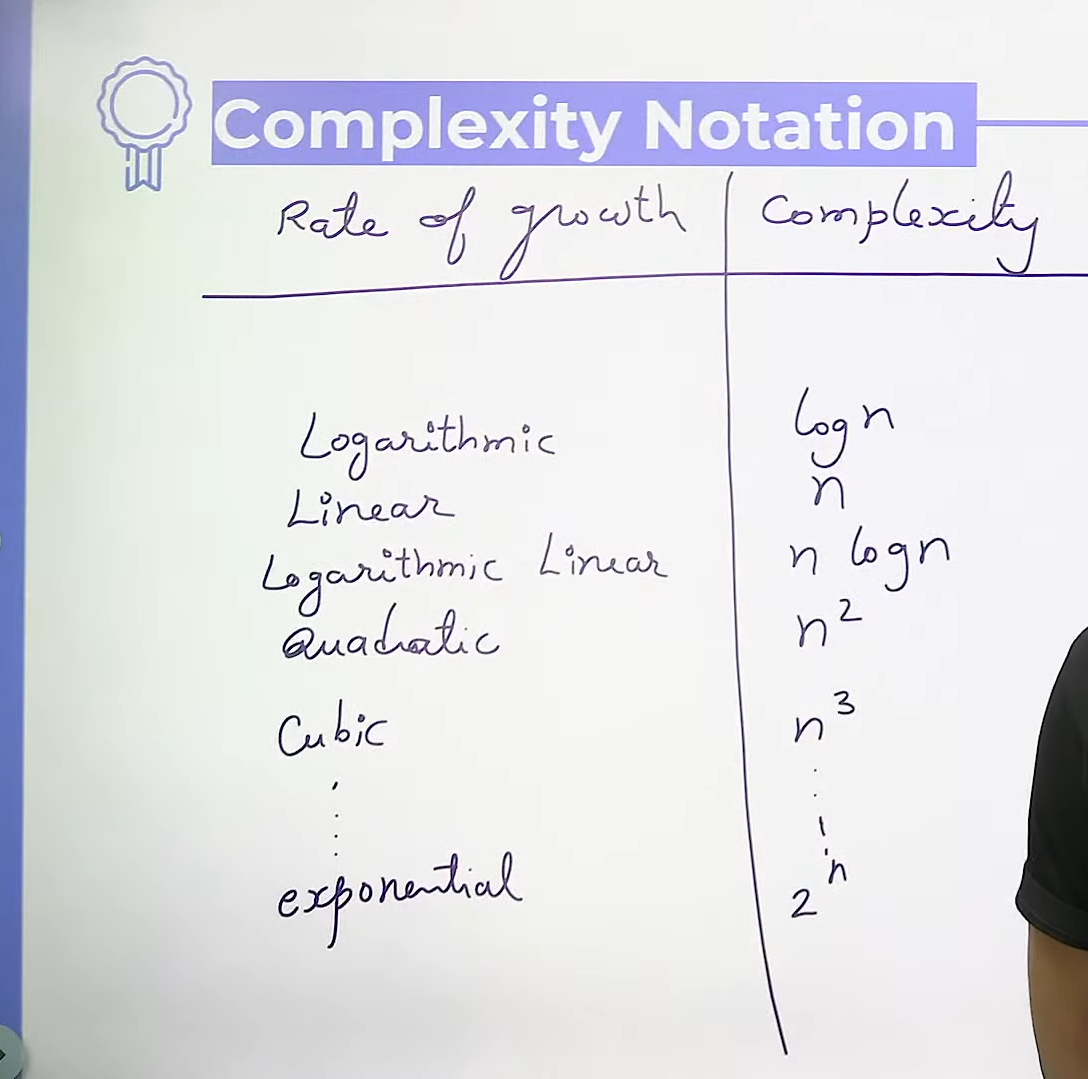 Complexity Notation
Rate of growth | Complexity
Logarithmic log n
Linear n
Logarithmic Linear n log n
Quadratic n²
Cubic n³
exponential 2ⁿ